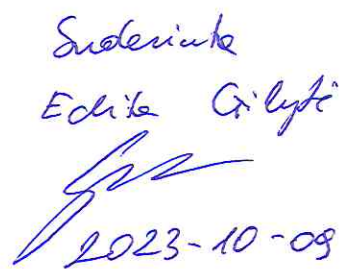 Suderinta
Edita Gilytė
2023-10-09